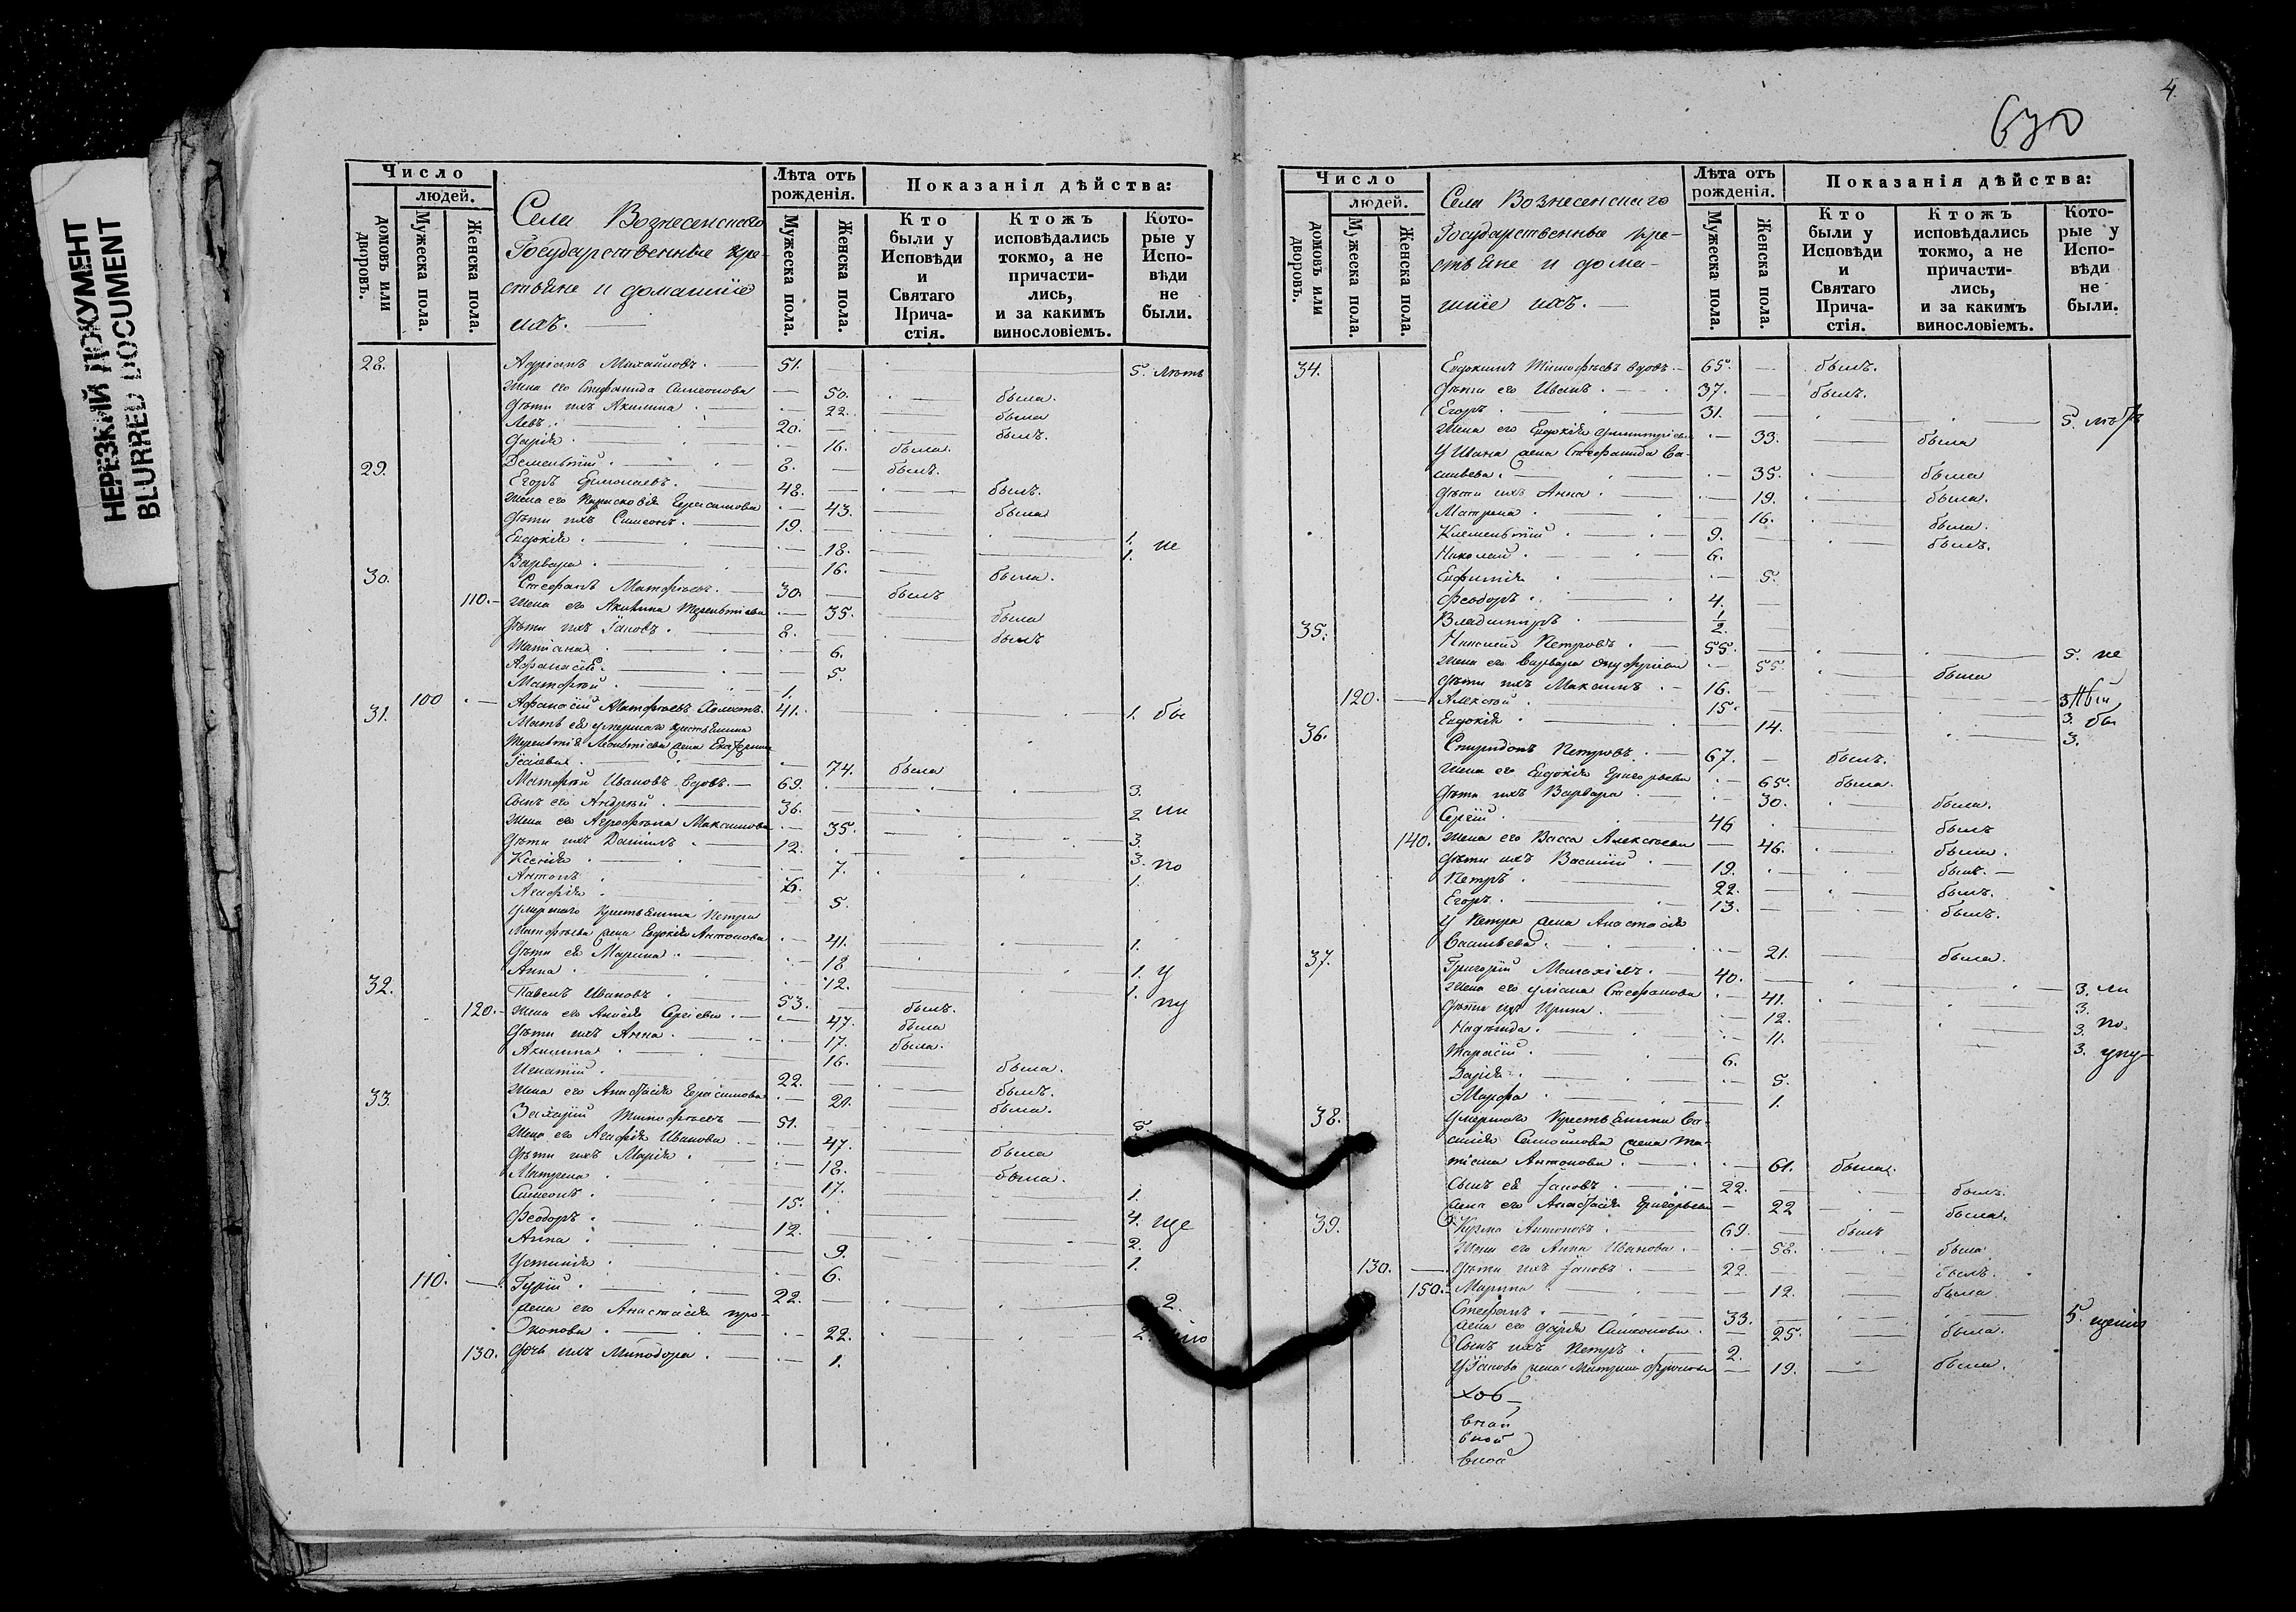 НЕРЕЗКИЙ ДОКУМЕНТ
BLURRED DOCUMENT
Число
людей.
домовъ или дворовъ.
Мужеска пола.
Женска пола.
Села Вознесенскаго
Государственные кре-
стьяне и домашніе
ихъ.
Лѣта отъ рожденія.
Мужеска пола.
Женска пола.
Показанія дѣйства:
Кто были у Исповѣди и Святаго Прича-стія.
Ктожъ исповѣдались токмо, а не причасти-лись, и за какимъ винословіемъ.
Кото-рые у Испо-вѣди не были.
28. Адріанъ Михайловъ. 51. 5. лѣтъ
Жена его Стефанида Симеонова 50. была.
Дѣти ихъ Акилина 22. была
Левъ. 20. былъ.
Дарія 16. была.
Дементій 8. былъ.
29. Егоръ Ермолаевъ. 48. былъ.
Жена его Парасковія Герасимова 43. была
Дѣти ихъ Симеонъ. 19. 1.
Евдокія 18. 1. не
Варвара 16. была.
30. Стефанъ Матѳѣевъ. 30. былъ
110. Жена его Акилина Терентіева 35. была
Дѣти ихъ Іаковъ. 8. былъ
Татіана 6.
Афанасій 5.
Матѳей 1.
100 Афанасій Матѳѣевъ Холостъ. 41. 1. бы
31. Мать ея умершаго крестьянина
Терентія Леонтіева жена
Ісаіева 74. была
Матѳей Ивановъ вдовъ. 69. 3.
Сынъ его Андрей 36. 2 ли
Жена его Агрофена Максимова 35. 3.
Дѣти ихъ Даніилъ 12. 3.
Ксенія 7. по
Антонъ 1.
Агафія 5.
Умершаго крестьянина Петра
Матѳѣева жена Евдокія Антонова 41. 1.
Дѣти ея Марина 18 1. у
Анна 12. 1.
32. Павелъ Ивановъ 53. былъ. пу
120. Жена его Анисія Сергіева 47. была
Дѣти ихъ Анна 17. была.
Акилина 16. была.
Игнатій 22. былъ.
Жена его Анастасія Герасимова 21. была.
33. Захарій Тимоѳѣевъ 51. 5.
Жена его Агафія Иванова 47. была
Дѣти ихъ Марія 18. была.
Матрена 17. 1.
Симеонъ 15. 4.
Ѳеодоръ 12. ще
Анна 9. 2.
Устинія 6. 1.
110. Гурій 22. 2.
жена его Анастасія про-
копова 22. 2.
130. Дочь ихъ Минодора 1.
4.
Число
людей.
домовъ или дворовъ.
Мужеска пола.
Женска пола.
Села Вознесенскаго
Государственные кре-
стьяне и дома-
шніе ихъ.
Лѣта отъ рожденія.
Мужеска пола.
Женска пола.
Показанія дѣйства:
Кто были у Исповѣди и Святаго Прича-стія.
Ктожъ исповѣдались токмо, а не причасти-лись, и за какимъ винословіемъ.
Кото-рые у Испо-вѣди не были.
34. Евдокимъ Тимоѳѣевъ вдовъ 65. былъ.
Дѣти его Иванъ 37. былъ.
Егоръ 31. 5.
Жена его Евдокія Димитріева 33. была
У Ивана жена Стефанида Ва-
сильева 35. была
Дѣти ихъ Анна 19. была.
Матрена 16. была.
Клементій 9. былъ.
Николай 6.
Евфимія 5.
Ѳеодоръ 4.
Владимиръ 1/2.
35. Петровъ 55. 5. не
Жена его Варвара Онуфріева 55. была
Дѣти ихъ Максимъ 16.
120. Алексѣй 15. 3
Евдокія 14. 3. бы
36. Спиридонъ Петровъ 67. былъ. 3.
Жена его Евдокія Григорьева 65. была.
Дѣти ихъ Варвара 30. была.
Сергій 46 былъ
140. Жена его Васса Алексѣева 46. была.
Дѣти ихъ Василій 19. былъ.
Петръ 22. былъ.
Егоръ 13. былъ.
У Петра жена Анастасія
Васильева 21. была.
37. Григорій Малахіевъ 40. 3. ли
Жена его Уліана Стефанова 41. 3.
Дѣти ихъ Ирина 12. 3. по
Надежда 11. 3. упу-
Тарасій 6.
Дарія 5.
Марфа 1.
38. Умершаго крестьянина Ва-
силія Самойлова жена Та-
тіана Антонова 61. была.
Сынъ ея Іаковъ 22. былъ.
жена его Анастасія Григорьева 22 была.
39. Кузма Антоновъ 69. былъ
Жена его Анна Иванова 58. была
130. Дѣти ихъ Іаковъ 22. былъ.
150. Марина 12. была
Стефанъ 33. 5. щенія
жена его Дарія Симеонова 25. была.
Сынъ ихъ Петръ 2.
У Іакова жена Матрена 19. была.